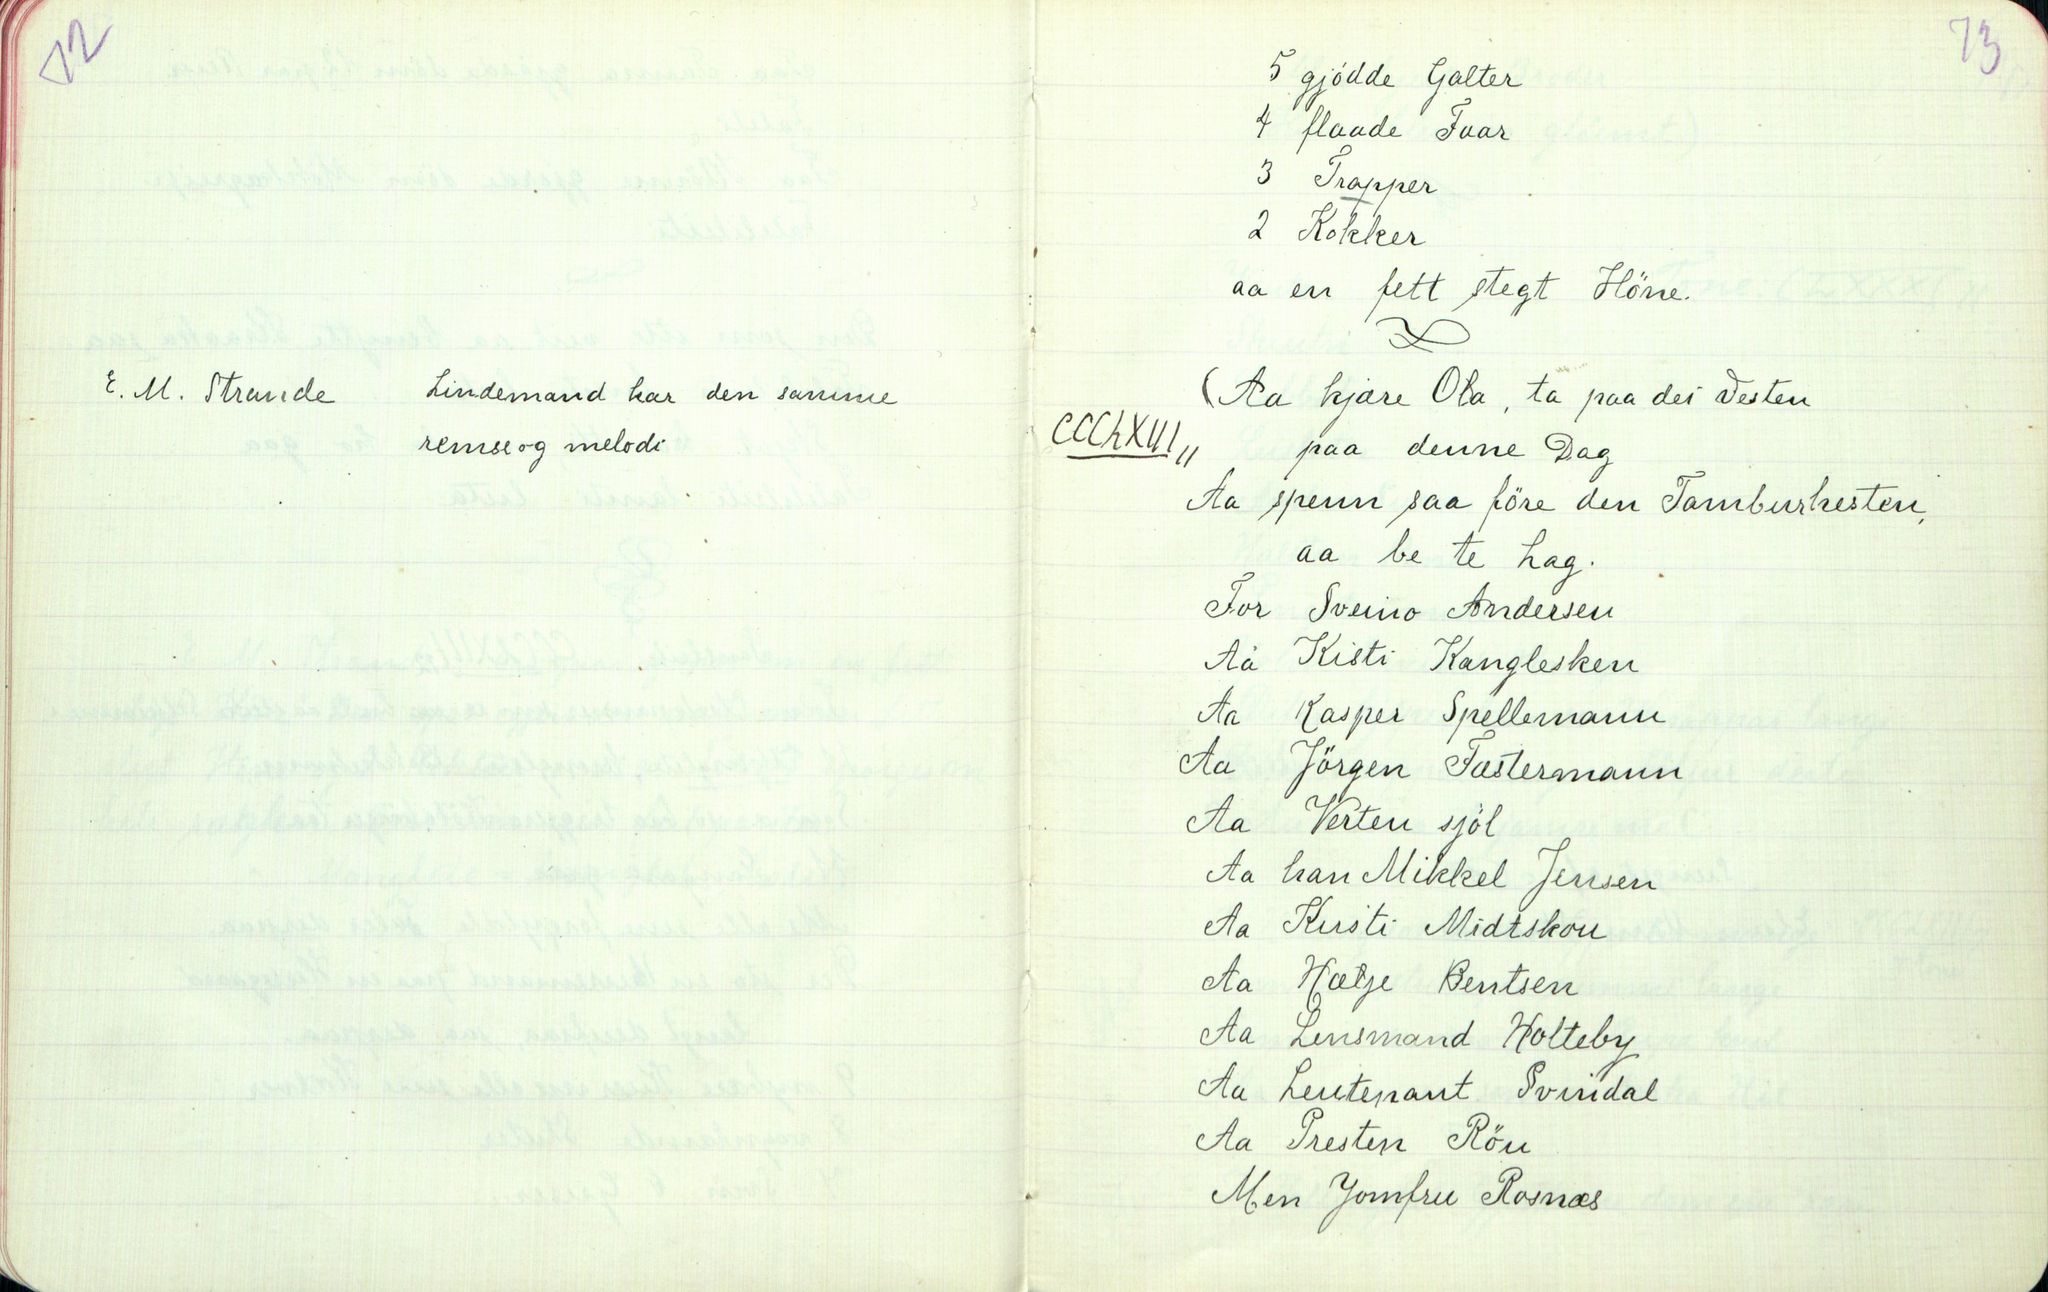 72
E. M. Strande Lindemand har den samme
remse og melodi
73
5 gjödde Galter
4 flaade Faar
3 Trapper
2 Kokker
aa en fett stegt Höne.
(Aa kjære Ola, ta paa dei Vesten
CCCLXIII,, paa denne Dag
Aa spenn saa före den Tamburhesten,
aa be te Lag.
For Sveino Andersen
Aa Kisti Kanglesken
Aa Kasper Spellemann
Aa Jörgen Fæstermann
Aa Verten sjöl
Aa han Mikkel Jensen
Aa Kirsti Midtskou
Aa Hætje Bentsen
Aa Lensmand Holteby
Aa Leutenant Svindal
Aa Presten Röu
Men Jomfru Rosnæs